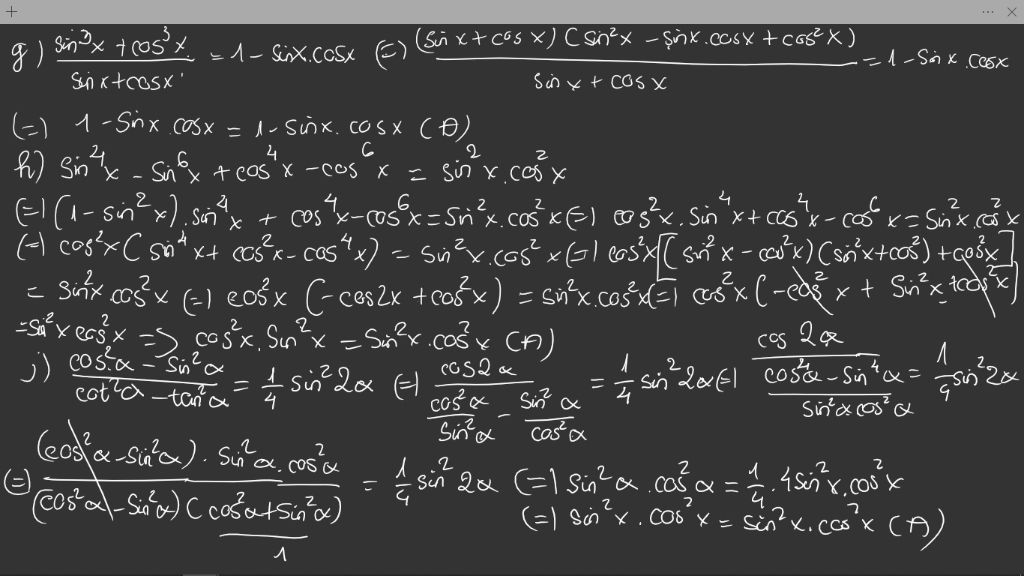 g) (sin³x + cos³x)/(sinx + cosx) = 1 - sinx.cosx (=) ((sinx + cosx)(sin²x - sinx.cosx + cos²x))/(sinx + cosx) = 1 - sinx.cosx
(=) 1 - sinx.cosx = 1 - sinx.cosx (Đ)
h) sin⁴x - sin⁶x + cos⁴x - cos⁶x = sin²x.cos²x
(=) (1 - sin²x).sin⁴x + cos⁴x - cos⁶x = sin²x.cos²x (=) cos²x.sin⁴x + cos⁴x - cos⁶x = sin²x.cos²x
(=) cos²x(sin⁴x + cos²x - cos⁴x) = sin²x.cos²x (=) cos²x[(sin²x - cos²x)(sin²x + cos²) + cos²x]
= sin²x.cos²x (=) cos²x(-cos2x + cos²x) = sin²x.cos²x (=) cos²x(-cos²x + sin²x + cos²x)
= sin²x cos²x => cos²x.sin²x = sin²x.cos²x (Đ)
j) (cos²α - sin²α)/(cot²α - tan²α) = 1/4 sin²2α (=) cos2α/(cos²α/sin²α - sin²α/cos²α) = 1/4 sin²2α (=) cos2α/((cos⁴α - sin⁴α)/(sin²α cos²α)) = 1/4 sin²2α
(=) ((cos²α - sin²α).sin²α.cos²α)/((cos²α - sin²α)(cos²α + sin²α)) = 1/4 sin²2α (=) sin²α.cos²α = 1/4.4sin²x.cos²x
(=) sin²x.cos²x = sin²x.cos²x (Đ)
1